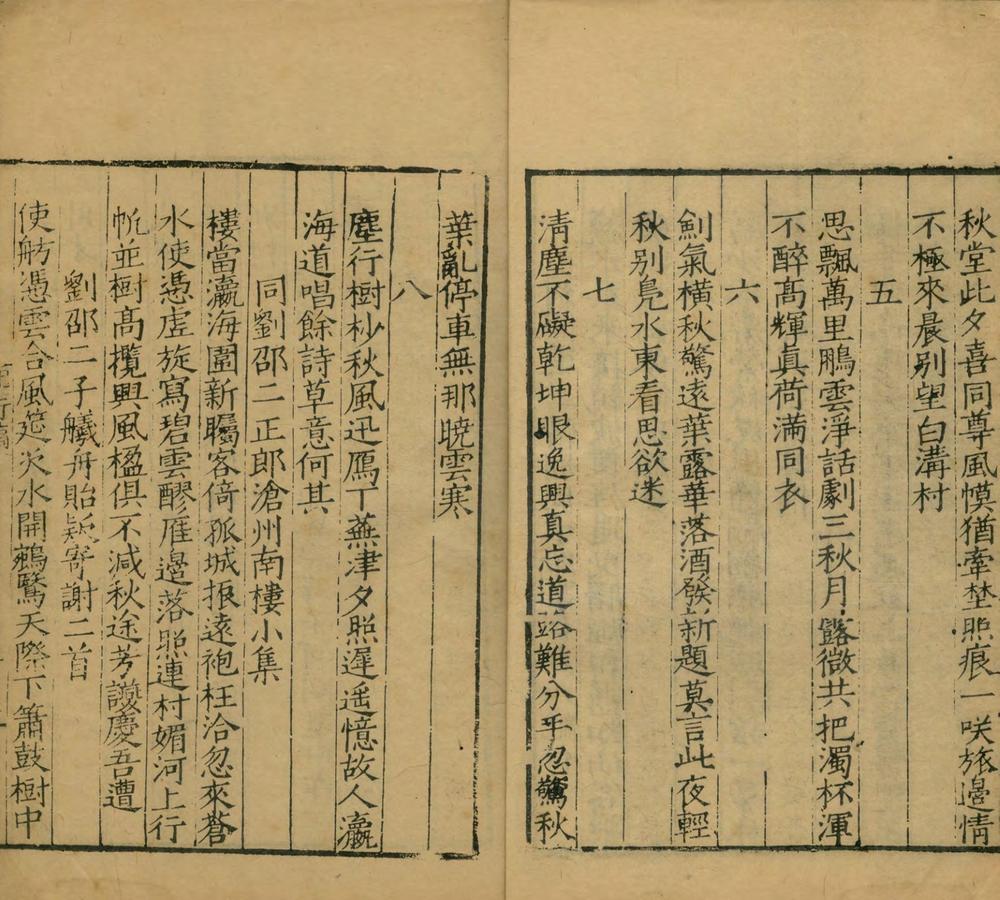 秋堂此夕喜同尊風幙猶牽埜照痕一咲旅邊情
不極來晨别望白溝村
五
思飄萬里鵬雲淨話劇三秋月露微共把濁杯渾
不醉髙輝真荷滿同衣
六
劍氣橫秋驚遠葉露華落酒發新題莫言此夜輕
秋别鳬水東看思欲迷
七
清塵不礙乾坤眼逸興真忘道路難分手忽驚秋
葉亂停車無那曉雲寒
八
塵行樹杪秋風迅鴈下蕪津夕照遲遥憶故人瀛
海道唱餘詩草意何其
同劉邵二正郎滄州南樓小集
樓當瀛海圍新矚客倚孤城振遠袍枉洽忽來蒼
水使憑虚旋寫碧雲醪雁邊落照連村媚河上行
帆並樹髙攬興風楹俱不減秋途芳讌慶吾遭
劉邵二子艤舟貽 寄謝二首
使舫憑雲合風筵 水開鵝鷖天際下簫鼓樹中